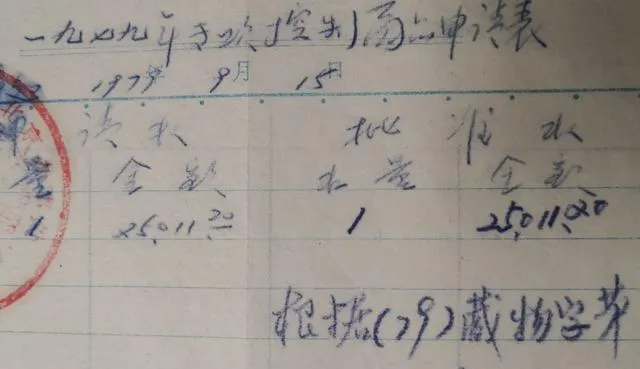 一九七九年专项控制商品申请表
1979年 9月 15日
申请数 批准数
数量 金额 数量 金额
1 25,011.20 1 25,011.20
根据(79)藏物字第